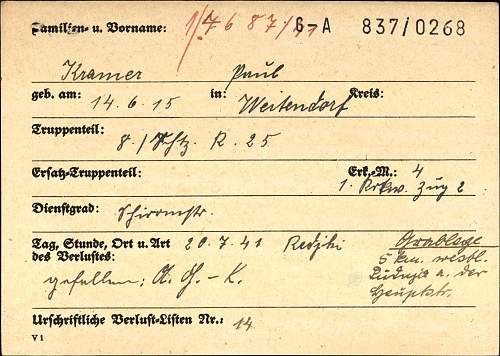 Familien- u. Vorname: 1/7687/ G-A 837/0268
Kramer Paul
geb. am: 14.6.15 in: Weitendorf Kreis:
Truppenteil: 8./Schtz. R. 25
Ersatz-Truppenteil: Erk.-M.: 4
1. Krkw. Zug 2
Dienstgrad: Schirrmstr.
Tag, Stunde, Ort u. Art 20.7.41 Redjki Grablage
des Verlustes: 5 km. westl.
gefallen: A. G. - K. Rudnja a. der
Hauptstr.
Urschriftliche Verlust-Listen Nr.: 14
V 1